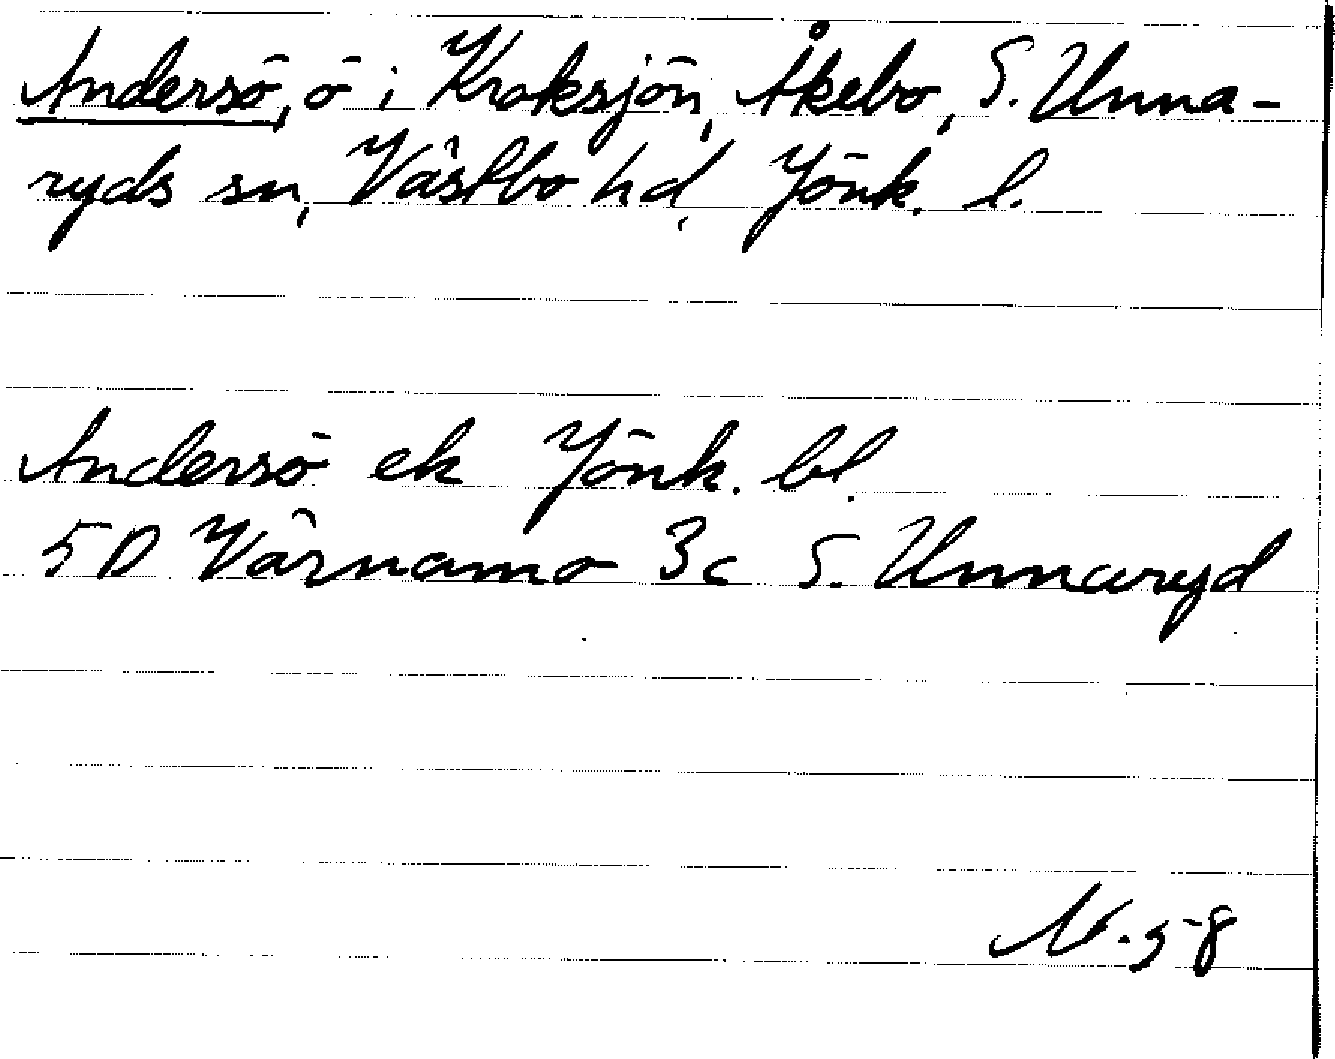 Andersö, ö i Kroksjön, Åkebo, S. Unna-
ryds sn, Västbo hd, Jönk. l.
Andersö ek Jönk. bl.
5D Värnamo 3c S. Unnaryd
N. 58